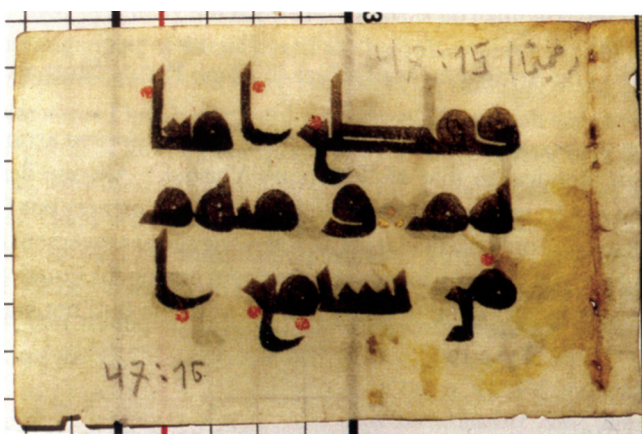 47:15 /حميما)
فقطع امعا
هم و منهم
من يستمع ا
47:16